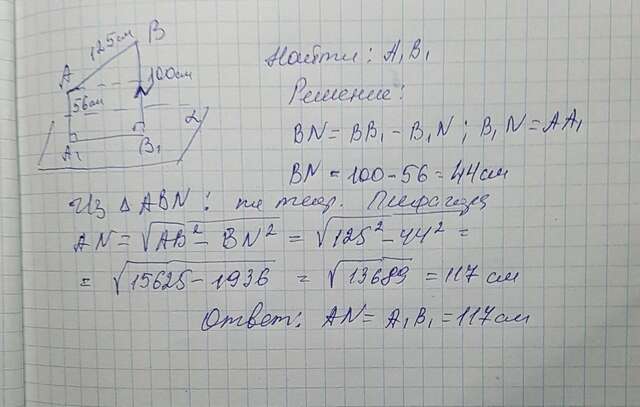 125см
B
A
100см
56см
N
α
A₁
B₁
Найти: A₁B₁
Решение:
BN = BB₁ - B₁N ; B₁N = AA₁
BN = 100-56 = 44см
Из △ ABN: по теор. Пифагора
AN = √AB² - BN² = √125² - 44² =
= √15625 - 1936 = √13689 = 117 см
Ответ: AN = A₁B₁ = 117см